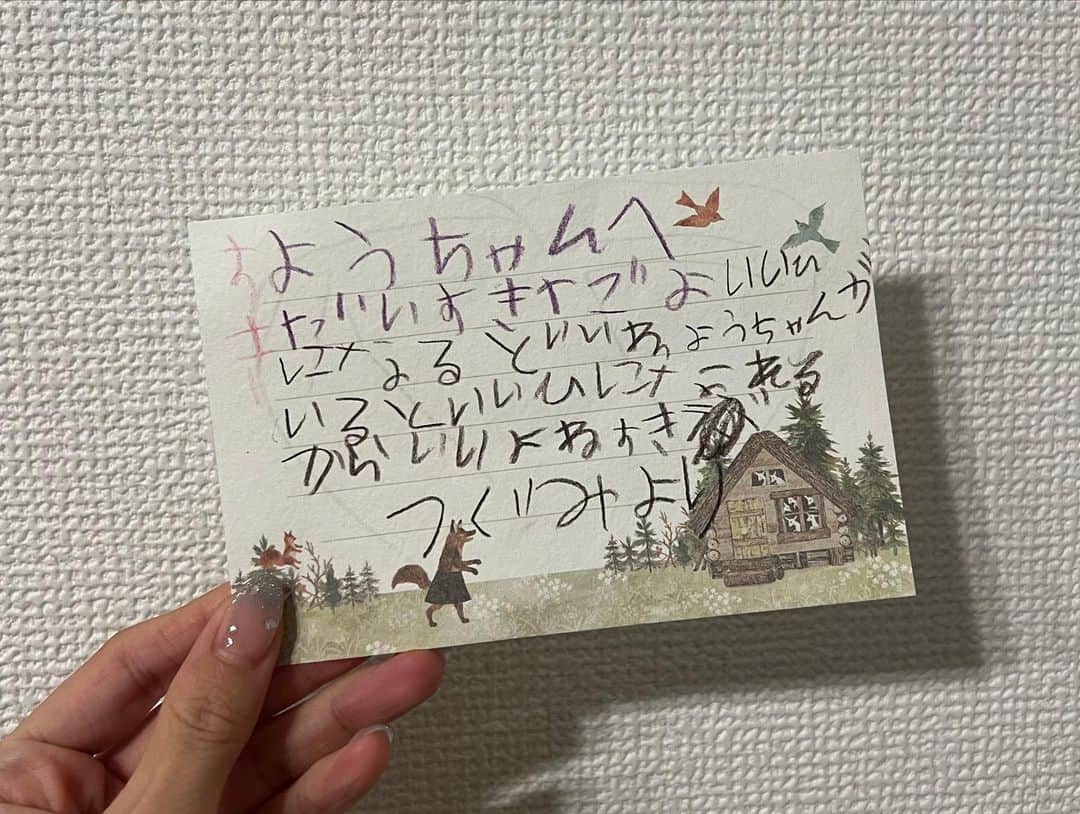 ようちゃんへ
だいすきだよいいひ
になるといいねようちゃんが
いるといいひになる
からいいよねすき
つぐみより